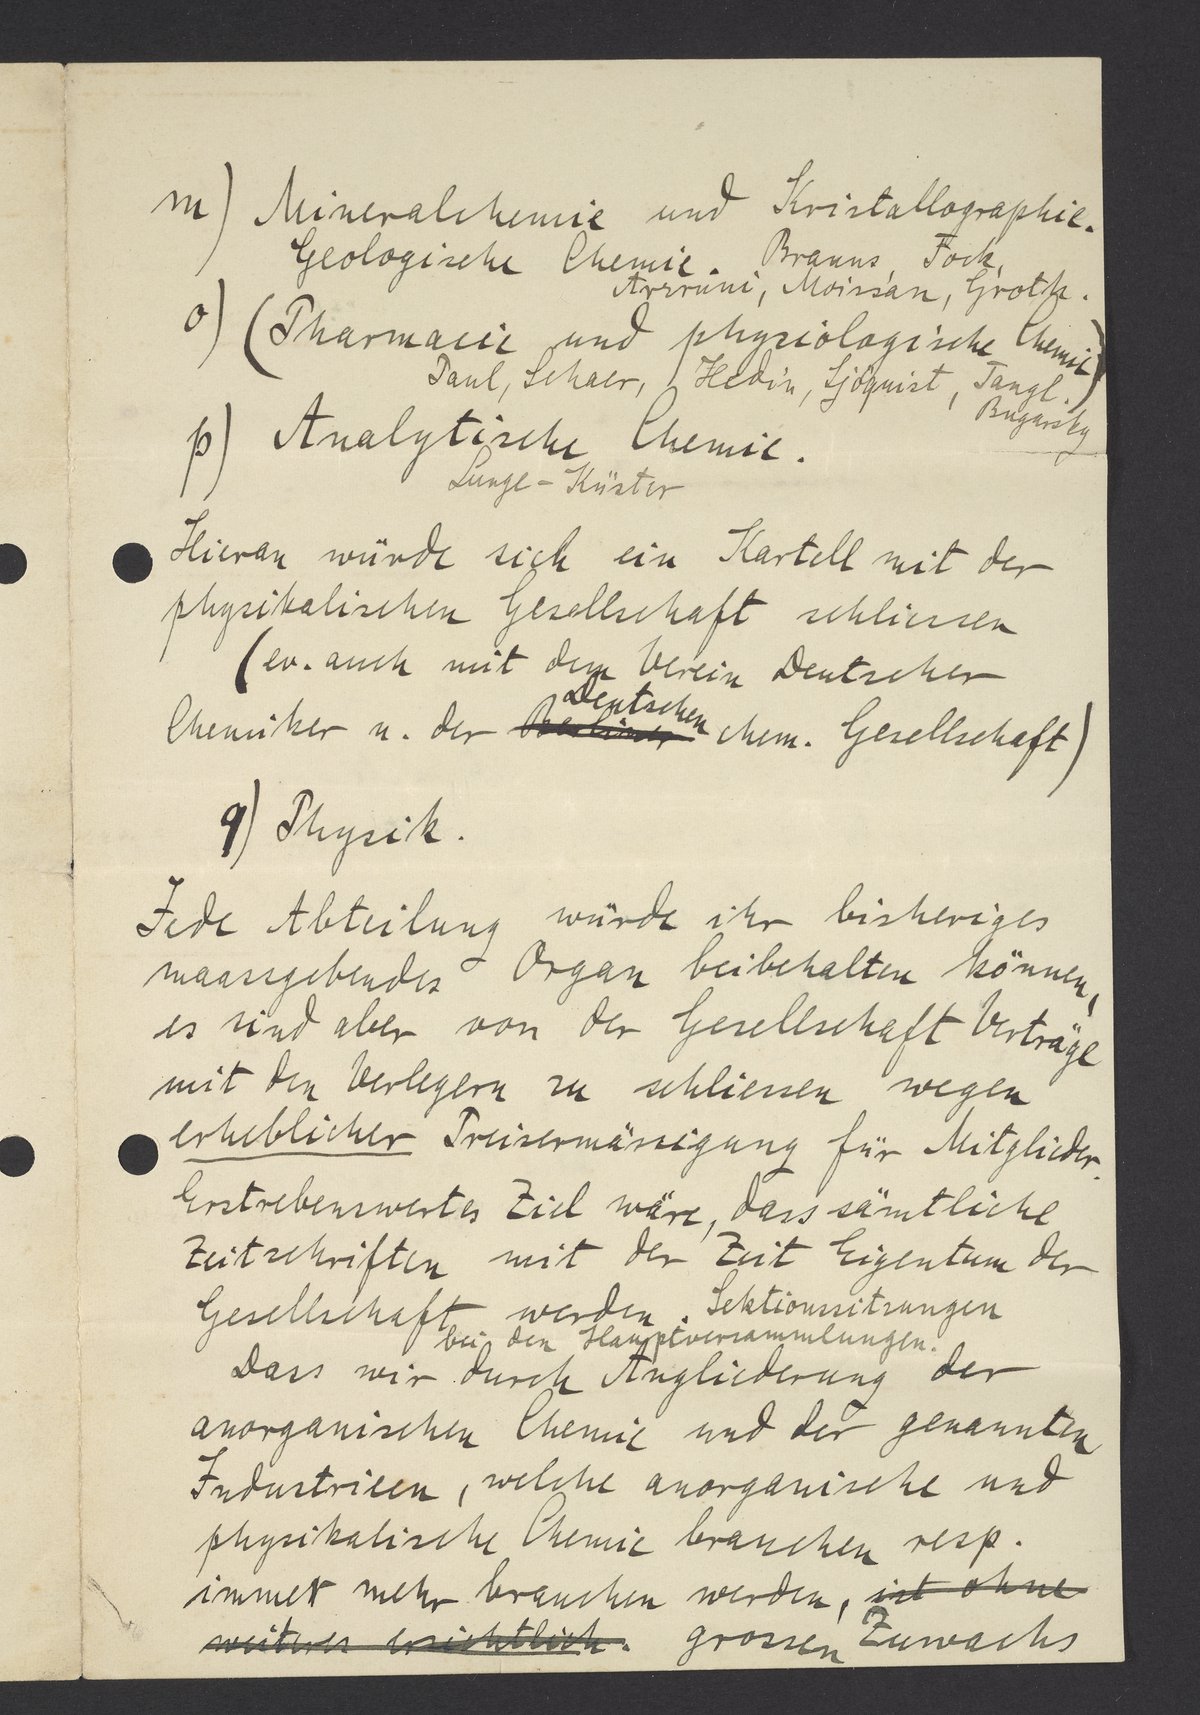 m) Mineralchemie und Kristallographie.
Geologische Chemie. Brauns, Fock,
Arzruni, Moissan, Groth.
o) (Pharmacie und physiologische Chemie)
Paul, Schaer, Hedin, Sjöquist, Tangl.
Bugarsky
p) Analytische Chemie.
Lunge - Küster
Hieran würde sich ein Kartell mit der
physikalischen Gesellschaft schliessen
(ev. auch mit dem Verein Deutscher
Deutschen
Chemiker u. der Berliner chem. Gesellschaft)
q) Physik.
Jede Abteilung würde ihr bisheriges
maassgebendes Organ beibehalten können,
es sind aber von der Gesellschaft Verträge
mit den Verlegern zu schliessen wegen
erheblicher Preisermässigung für Mitglieder.
Erstrebenswertes Ziel wäre, dass sämtliche
Zeitschriften mit der Zeit Eigentum der
Gesellschaft werden. Sektionssitzungen
bei den Hauptversammlungen.
Dass wir durch Angliederung der
anorganischen Chemie und der genannten
Industrieen, welche anorganische und
physikalische Chemie brauchen resp.
immer mehr brauchen werden, ist ohne
weiteres ersichtlich. grossen Zuwachs